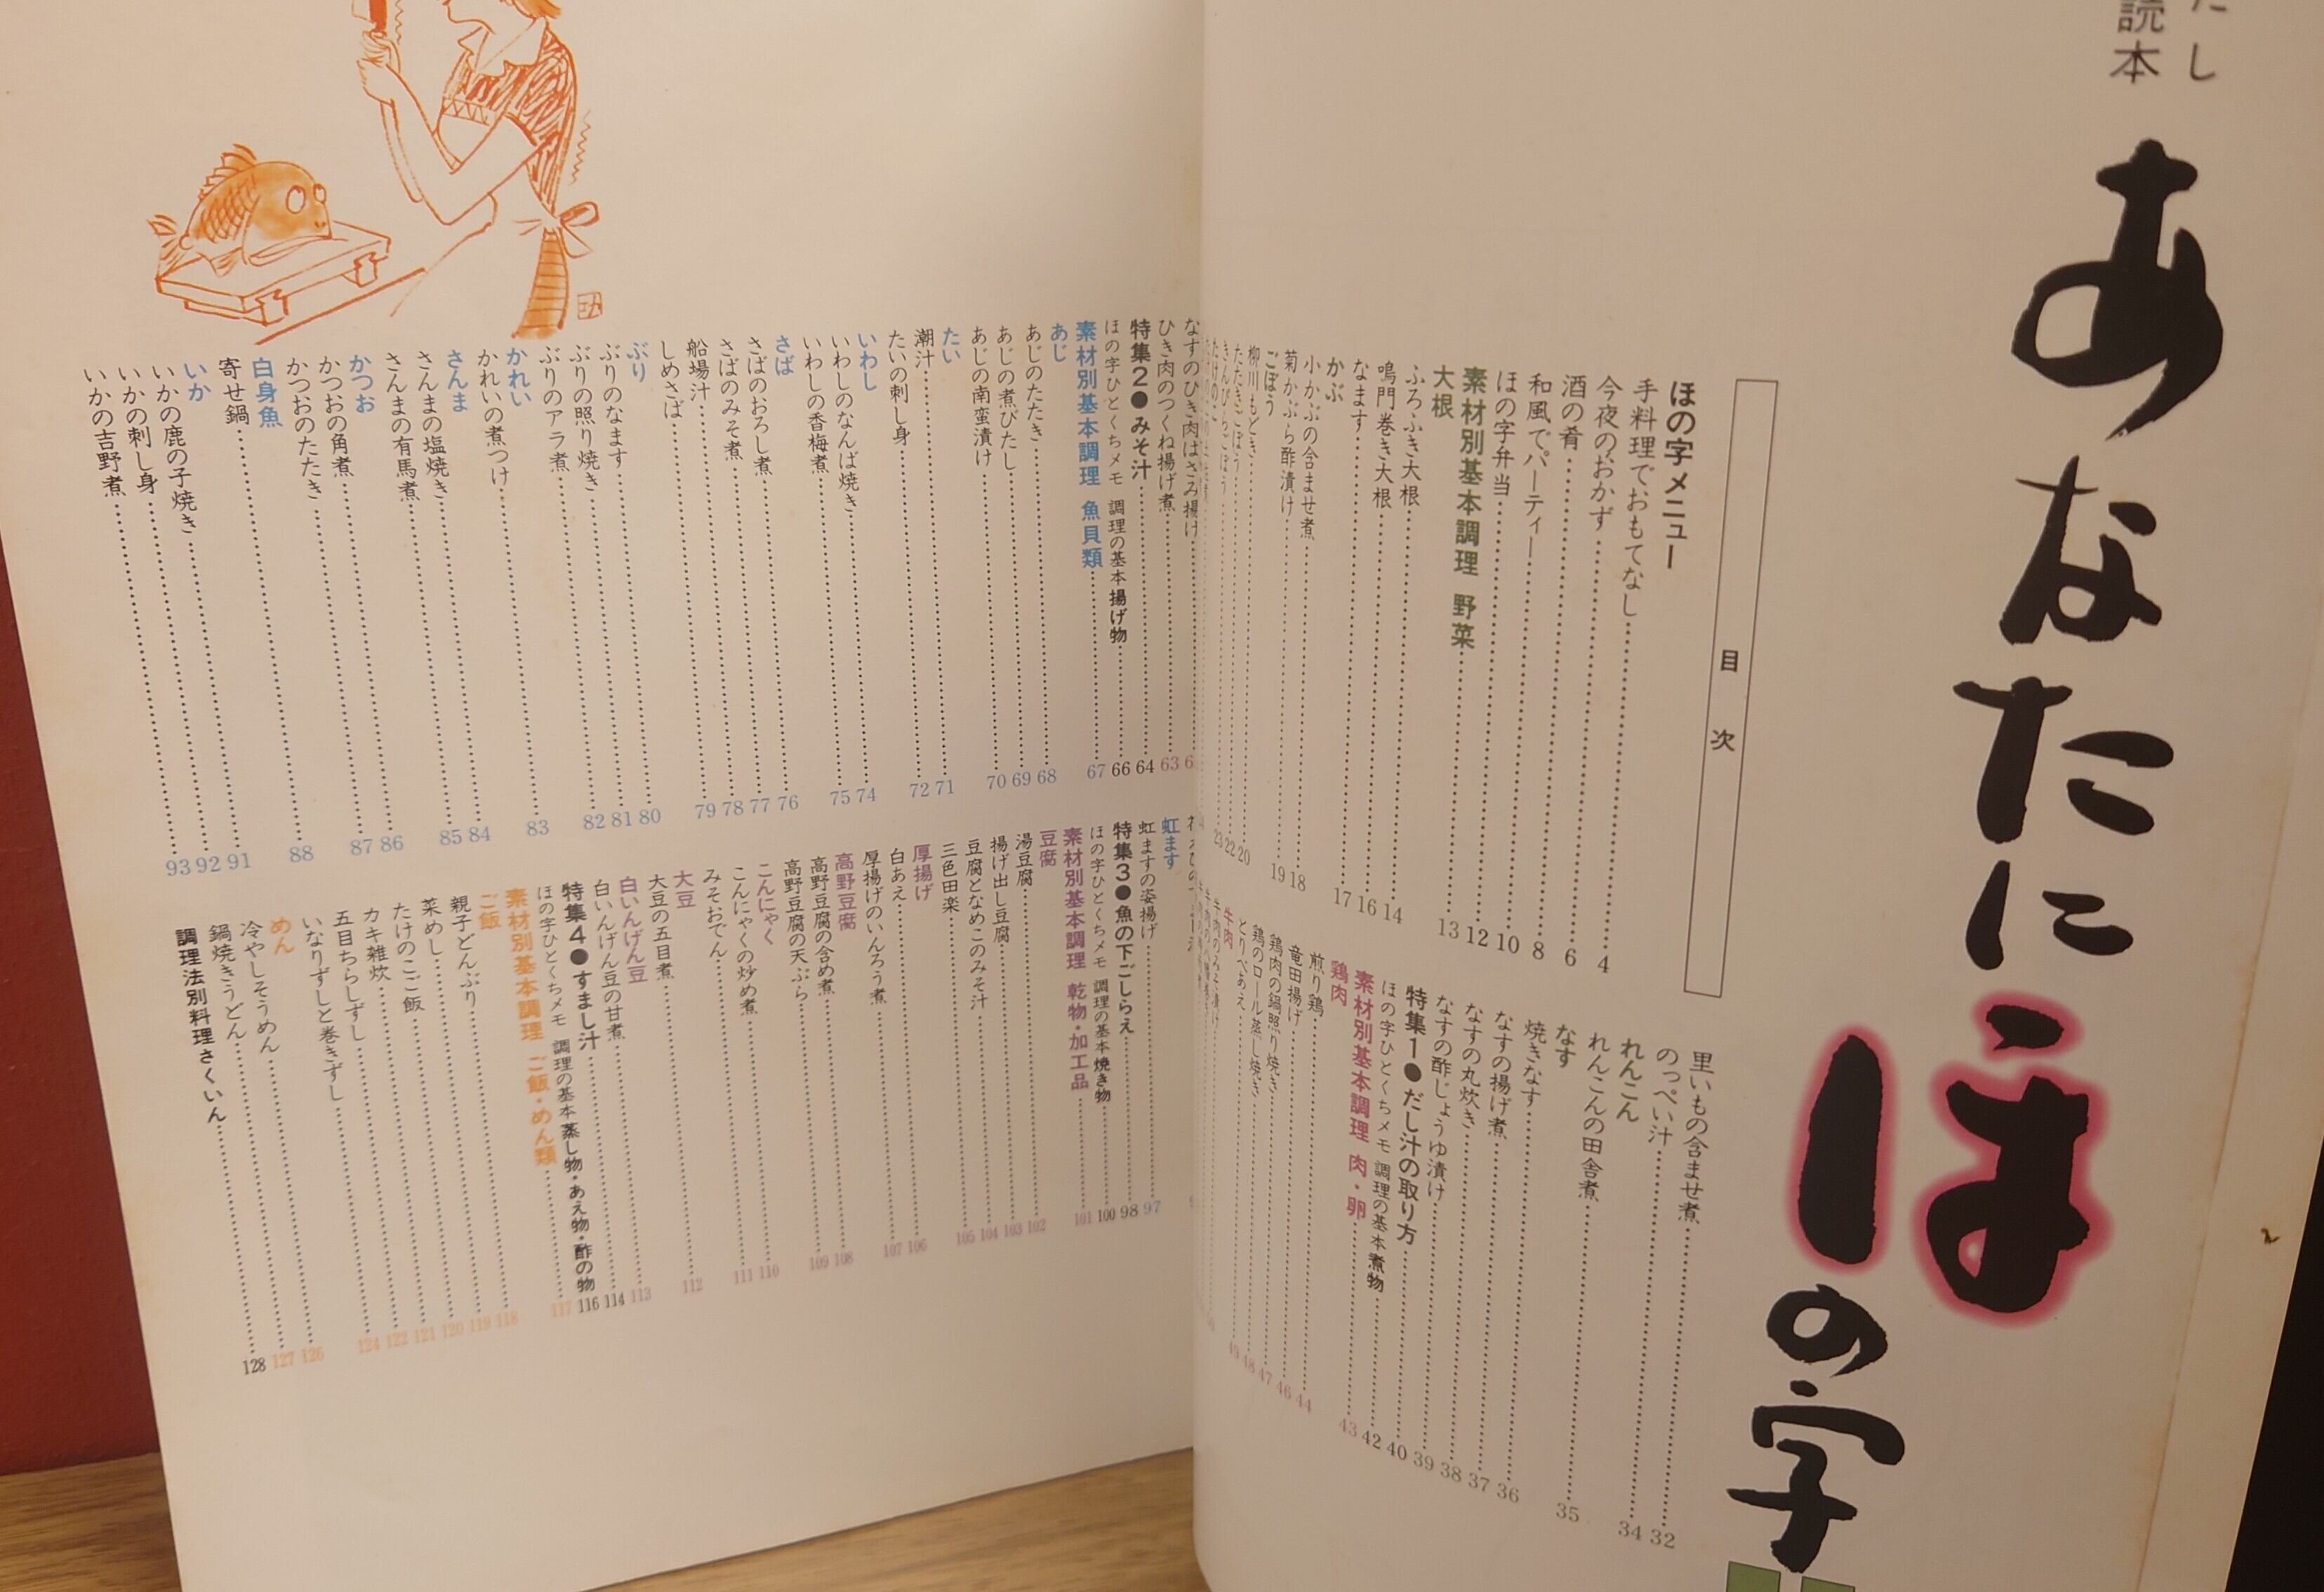 たし
読本
あなたにほの字
目次
ほの字メニュー
手料理でおもてなし 4
今夜の、おかず 6
酒の肴 8
和風でパーティー 10
ほの字弁当 12
素材別基本調理 野菜 13
大根
ふろふき大根 14
鳴門巻き大根 16
なます 17
かぶ
小かぶの含ませ煮 18
菊かぶら酢漬け 19
ごぼう
柳川もどき 20
たたきごぼう 22
きんぴらごぼう 23
里いもの含ませ煮 32
のっぺい汁 34
れんこん
れんこんの田舎煮 35
なす
焼きなす 36
なすの揚げ煮 37
なすの丸炊き 38
なすの酢じょうゆ漬け 39
特集1●だし汁の取り方 40
ほの字ひとくちメモ 調理の基本 煮物 42
素材別基本調理 肉・卵 43
鶏肉
煎り鶏 44
竜田揚げ 46
鶏肉の鍋照り焼き 47
鶏のロール蒸し焼き 48
とりべあえ 49
牛肉
牛肉のみそ漬け
なすのひき肉はさみ揚げ
ひき肉のつくね揚げ煮 63
特集2●みそ汁 64
ほの字ひとくちメモ 調理の基本 揚げ物 66
素材別基本調理 魚貝類 67
あじ
あじのたたき 68
あじの煮びたし 69
あじの南蛮漬け 70
たい
潮汁 71
たいの刺し身 72
いわし
いわしのなんば焼き 74
いわしの香梅煮 75
さば
さばのおろし煮 76
さばのみそ煮 77
船場汁 78
しめさば 79
ぶり
ぶりのなます 80
ぶりの照り焼き 81
ぶりのアラ煮 82
かれい
かれいの煮つけ 83
さんま
さんまの塩焼き 84
さんまの有馬煮 85
かつお
かつおの角煮 86
かつおのたたき 87
白身魚
寄せ鍋 88
いか
いかの鹿の子焼き 91
いかの刺し身 92
いかの吉野煮 93
虹ます
虹ますの姿揚げ 97
特集3●魚の下ごしらえ 98
ほの字ひとくちメモ 調理の基本 焼き物 100
素材別基本調理 乾物・加工品 101
豆腐
湯豆腐 102
揚げ出し豆腐 103
豆腐となめこのみそ汁 104
三色田楽 105
厚揚げ
白あえ 106
厚揚げのいんろう煮 107
高野豆腐
高野豆腐の含め煮 108
高野豆腐の天ぷら 109
こんにゃく
こんにゃくの炒め煮 110
みそおでん 111
大豆
大豆の五目煮 112
白いんげん豆
白いんげん豆の甘煮 113
特集4●すまし汁 114
ほの字ひとくちメモ 調理の基本 蒸し物・あえ物・酢の物 116
素材別基本調理 ご飯・めん類 117
ご飯
親子どんぶり 118
菜めし 119
たけのこご飯 120
カキ雑炊 121
五目ちらしずし 122
いなりずしと巻きずし 124
めん
冷やしそうめん 126
鍋焼きうどん 127
調理法別料理さくいん 128